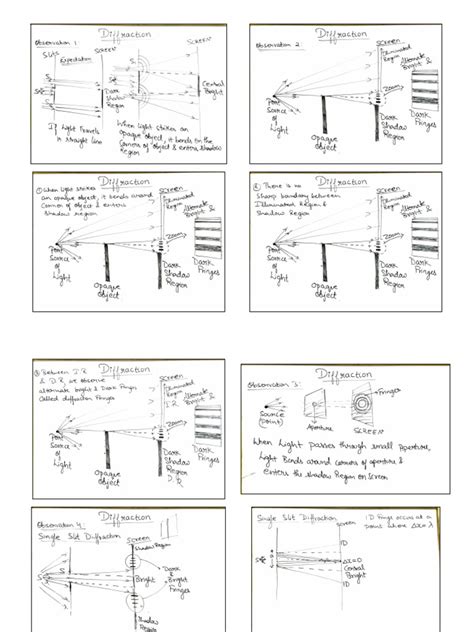 Diffraction
Observation 1:
Slits
Screen
Expectation
Screen
S
Dark
Shadow
Region
Central
Bright
If Light Travels
in straight line
When light strikes an
opaque object, it bends on the
corners of object & enters shadow
Region
Diffraction
Observation 2:
Screen
Illuminated
Region
Alternate
Bright &
Zoom
Point
Source
of
Light
Opaque
Object
Dark
Shadow
Region
Dark
Fringes
Diffraction
① When light strikes
an opaque object, it bends around
corner of object & enters
Shadow region
Screen
Illuminated
Region
Alternate
Bright &
Zoom
Point
Source
of
Light
Opaque
Object
Dark
Shadow
Region
Dark
Fringes
Diffraction
② There is no
Sharp boundary between
Illuminated Region &
Shadow Region
Screen
Illuminated
Region
Alternate
Bright &
Zoom
Point
Source
of
Light
Opaque
Object
Dark
Shadow
Region
Dark
Fringes
Diffraction
③ Between I.R
& D.R, we observe
alternate bright & Dark Fringes
Called diffraction Fringes
Screen
Illuminated
Region
I.R
Alternate
Bright &
Zoom
Point
Source
of
Light
Opaque
Object
Dark
Shadow
Region
D.R
Dark
Fringes
Diffraction
Observation 3:
Fringes
Source
(Point)
Aperture
SCREEN
When Light passes through small Aperture,
Light Bends around corners of aperture &
enters the shadow Region on screen
Diffraction
Observation 4:
Single Slit Diffraction
Screen
Shadow Region
S
Dark
&
Bright
Bright
Fringes
Shadow
Region
Single Slit Diffraction
screen
1D Fringe occurs at a
where ΔX=λ
1D
S
ΔX=0
Central
Bright
1D